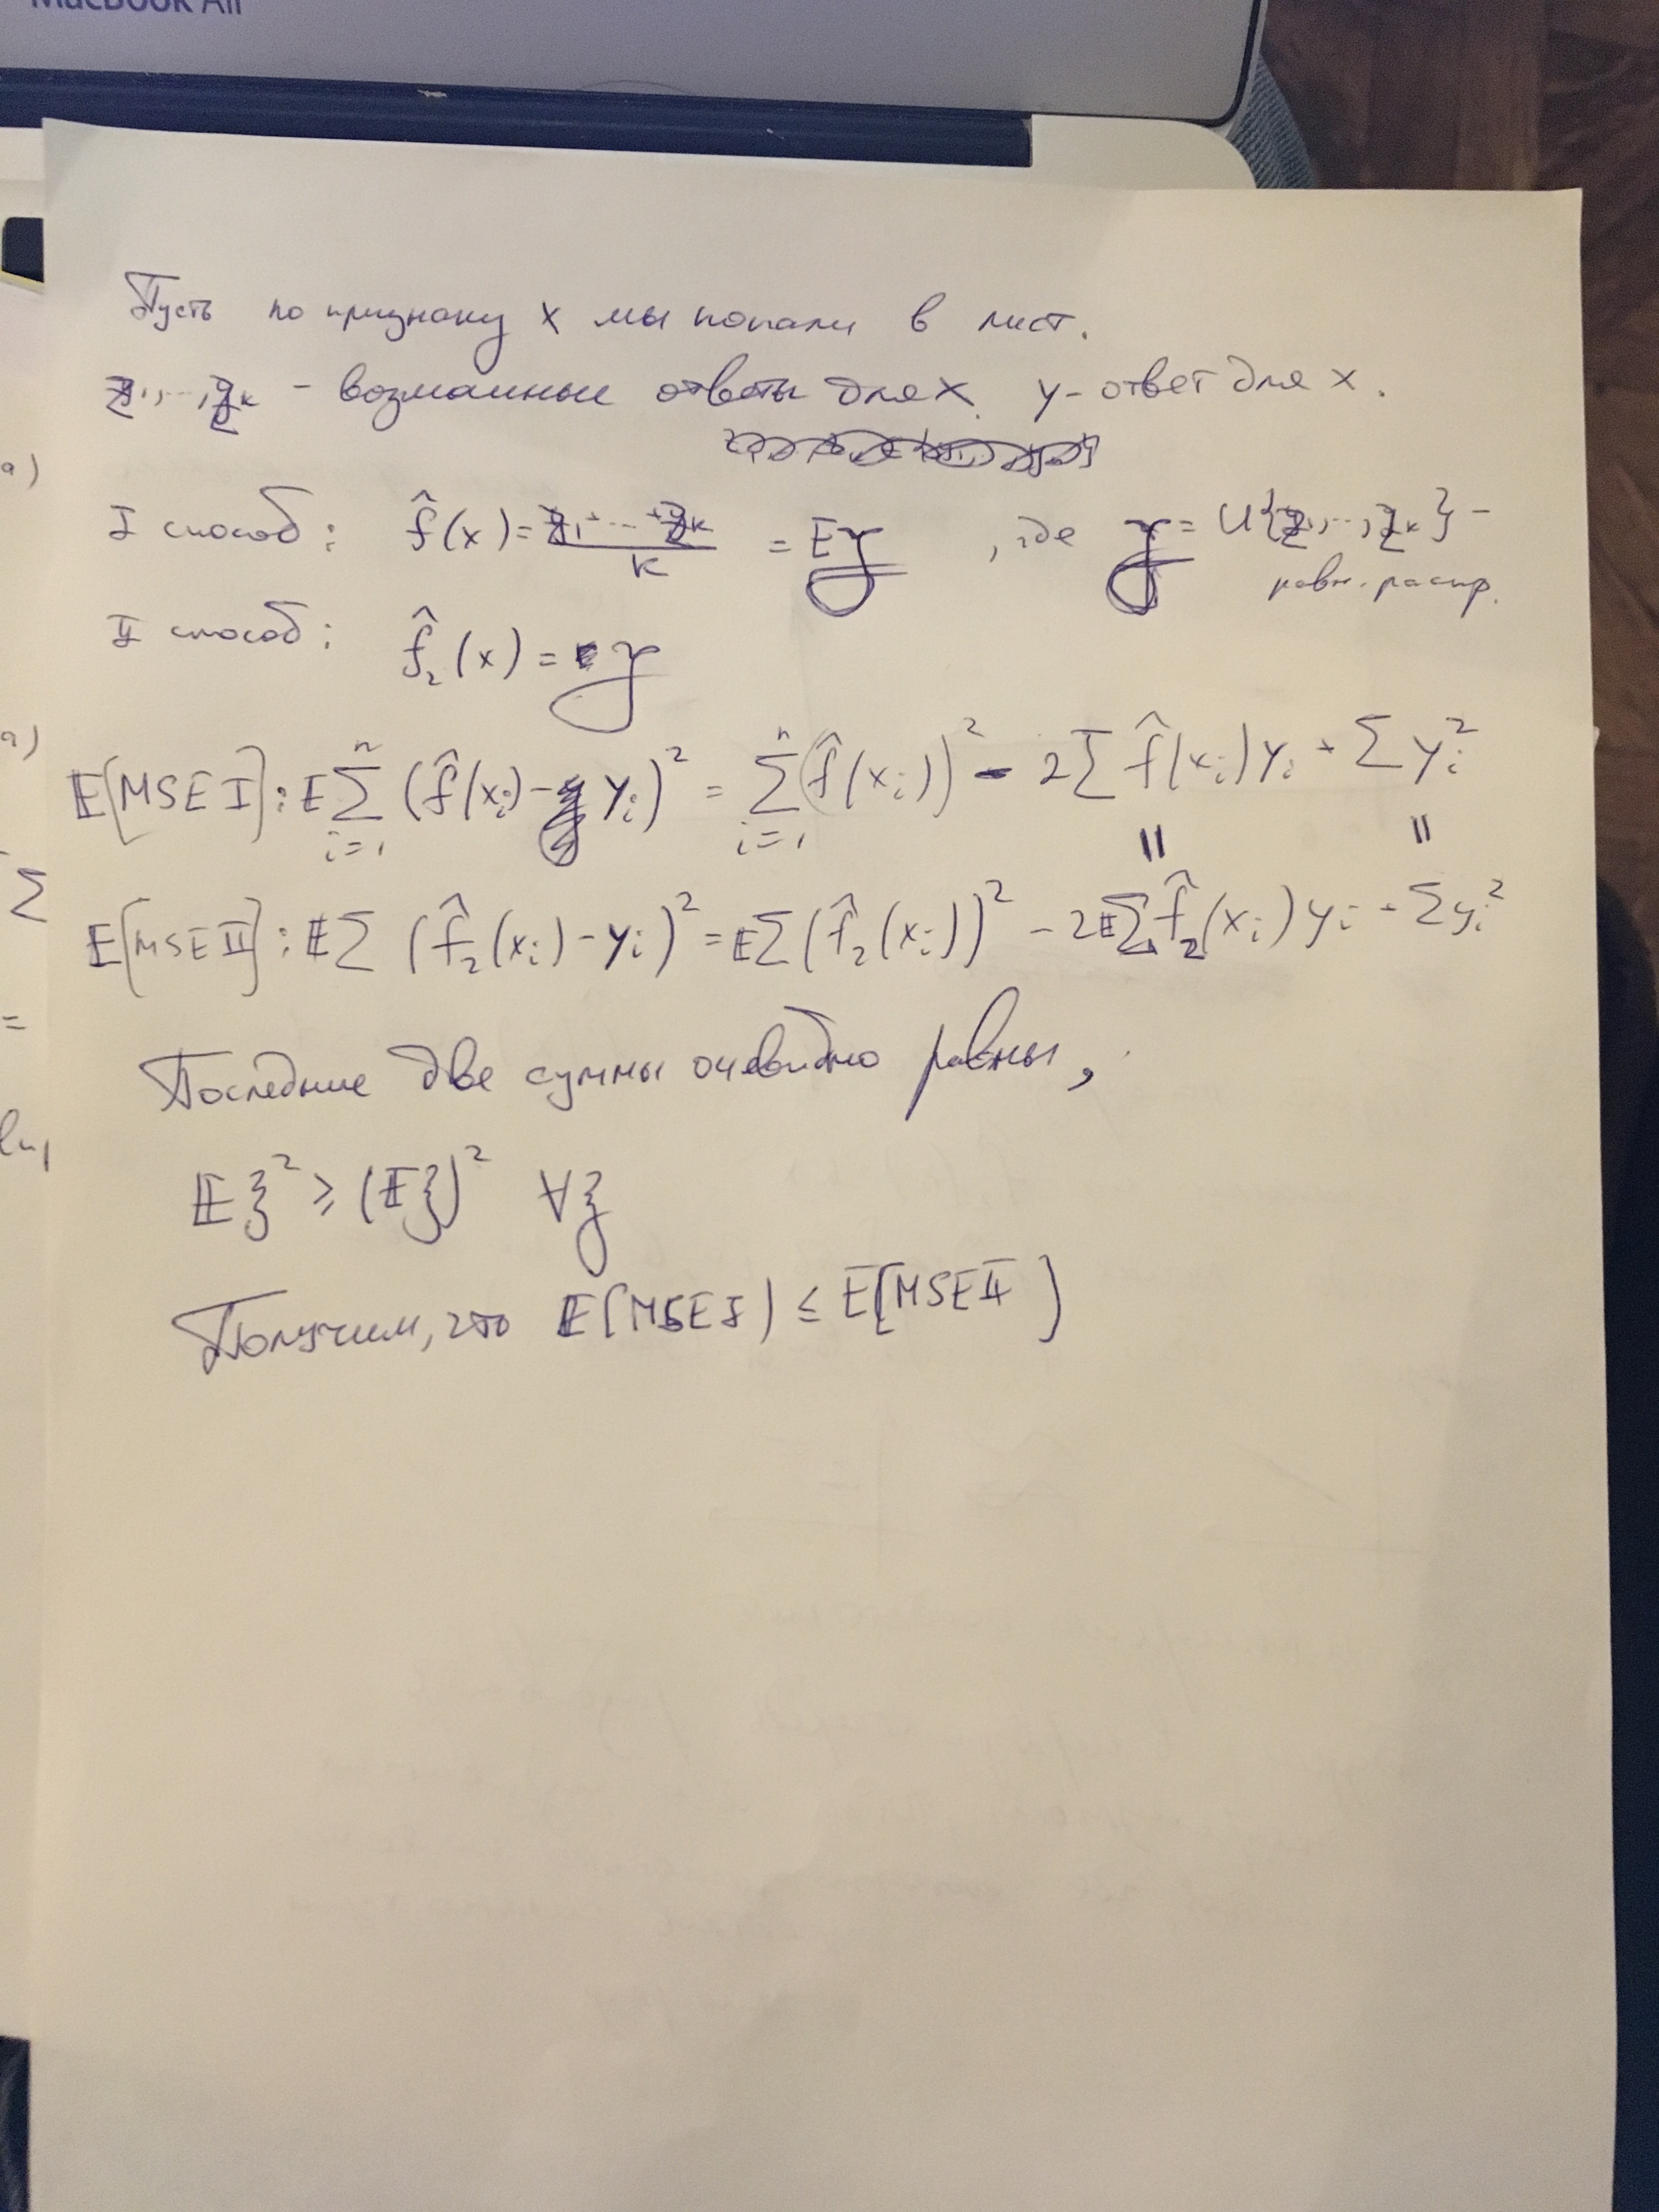 MacBook Air
Пусть по признаку x мы попали в лист.
z₁,...,z_k - возможные ответы для x. y - ответ для x.
a)
I способ: f̂(x) = (z₁+...+z_k)/k = Eγ, где γ = U{z₁,...,z_k} -
равн. распр.
II способ: f̂₂(x) = γ
a)
E[MSE I]: E∑ᵢ₌₁ⁿ (f̂(xᵢ) - yᵢ)² = ∑ᵢ₌₁ⁿ (f̂(xᵢ))² - 2∑ f̂(xᵢ)yᵢ + ∑ yᵢ²
|| ||
∑
E[MSE II]: E∑ (f̂₂(xᵢ) - yᵢ)² = E∑(f̂₂(xᵢ))² - 2E∑ f̂₂(xᵢ)yᵢ + ∑yᵢ²
=
Последние две суммы очевидно равны,
Eξ² ≥ (Eξ)² ∀ξ
Получим, что E[MSE I] ≤ E[MSE II]